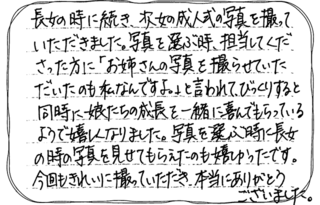 長女の時に続き、次女の成人式の写真を撮って
いただきました。写真を選ぶ時、担当してくだ
さった方に「お姉さんの写真を撮らせていた
だいたのも私なんですよ。」と言われてびっくりすると
同時に娘たちの成長を一緒に喜んでもらっている
ようで嬉しくなりました。写真を選ぶ時に長女
の時の写真を見せてもらえたのも嬉しかったです。
今回もきれいに撮っていただき、本当にありがとう
ございました。